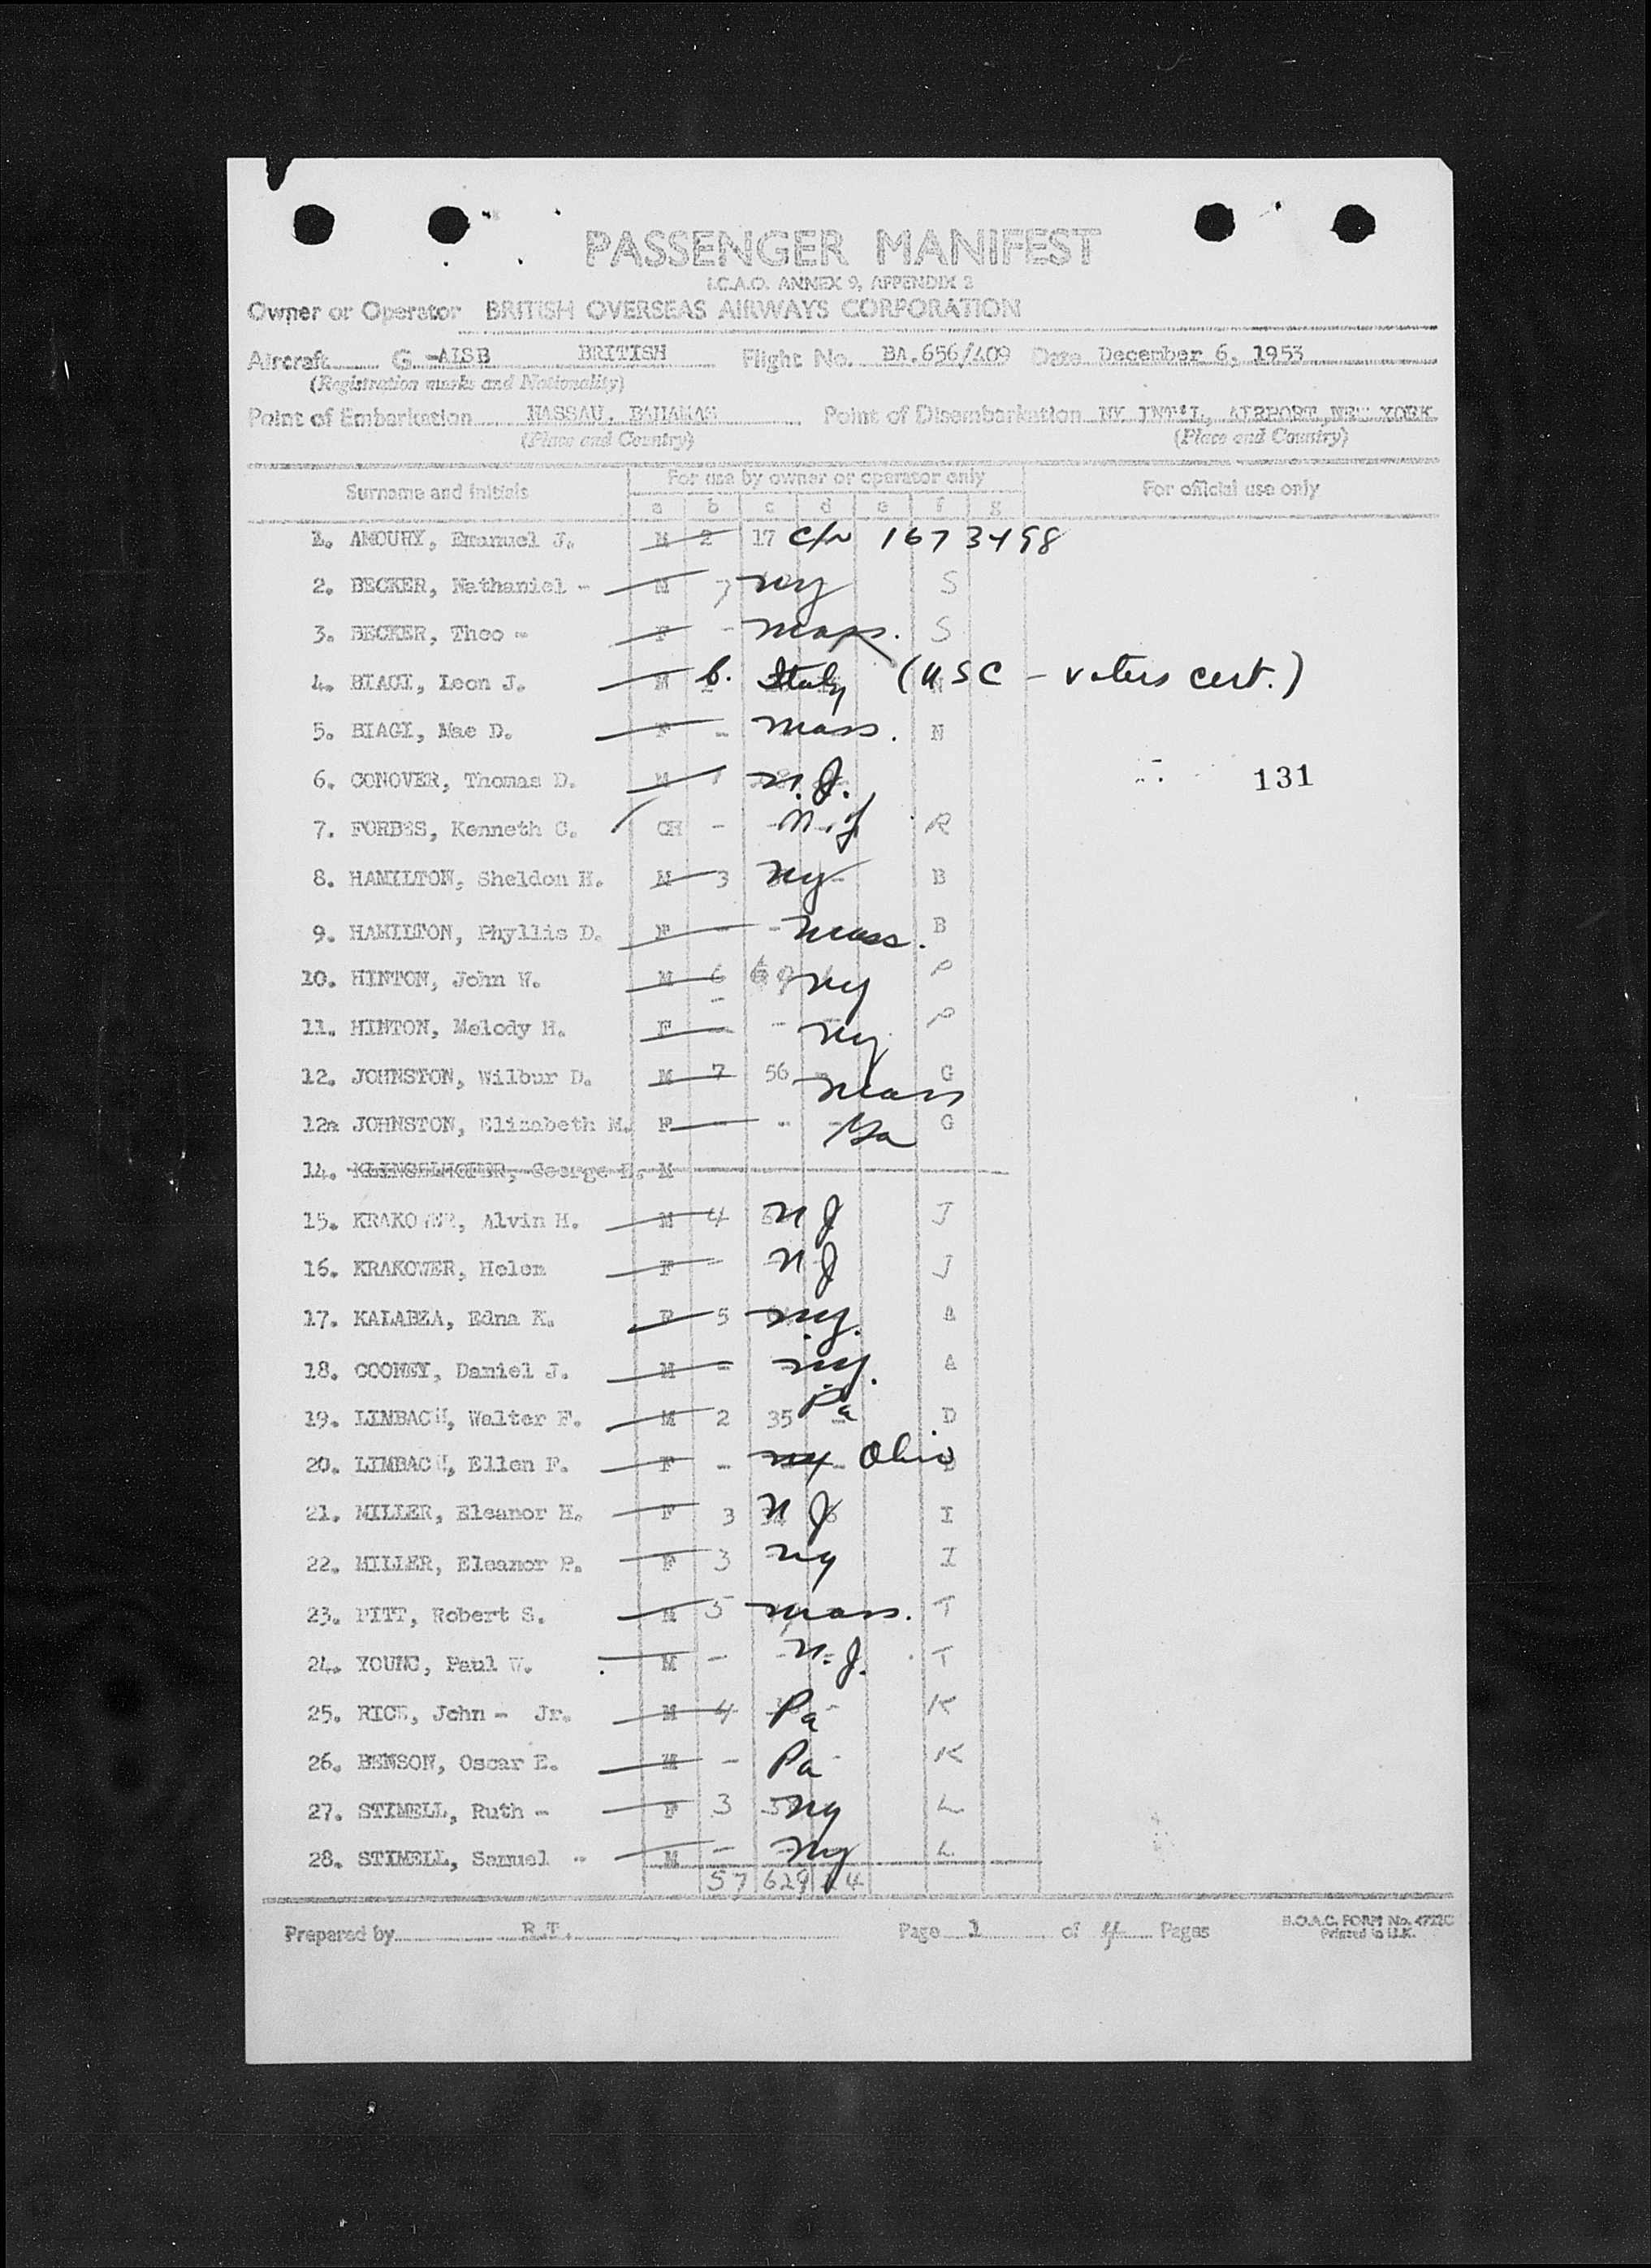 PASSENGER MANIFEST
I.C.A.O. ANNEX 9, APPENDIX 3
Owner or Operator BRITISH OVERSEAS AIRWAYS CORPORATION
Aircraft G-AISB BRITISH Flight No. BA.656/409 Date December 6, 1953
(Registration marks and Nationality)
Point of Embarkation NASSAU, BAHAMAS Point of Disembarkation NY INT'L, AIRPORT, NEW YORK
(Place and Country) (Place and Country)
Surname and initials For use by owner or operator only For official use only
a b c d e f g
1. AMOURY, Emanuel J. M 2 17 C/N 1673498
2. BECKER, Nathaniel - M 7 NY S
3. BECKER, Theo - F - Mass. S
4. BIAGI, Leon J. M b. Italy (USC - voters cert.) N
5. BIAGI, Mae D. F - Mass. N
6. CONOVER, Thomas D. M 1 N.J. 131
7. FORBES, Kenneth C. CH - N.J R
8. HAMILTON, Sheldon H. M 3 NY - B
9. HAMILTON, Phyllis D. F - - Mass. B
10. HINTON, John W. M 6 69 NY P
11. HINTON, Melody H. F - - NY P
12. JOHNSTON, Wilbur D. M 7 56 - Mass G
12a JOHNSTON, Elizabeth M. F - - G
14. KLINGELHOFER, George M
15. KRAKOWER, Alvin H. M 4 N J J
16. KRAKOWER, Helen F - N J J
17. KALABZA, Edna K. F 5 N.Y. A
18. COONEY, Daniel J. M - N.Y. A
19. LIMBACH, Walter F. M 2 35 - Pa D
20. LIMBACH, Ellen F. F - NY - Ohio D
21. MILLER, Eleanor H. F 3 N J I
22. MILLER, Eleanor P. F 3 NY I
23. PITT, Robert S. M 5 Mass. T
24. YOUNG, Paul W. M - - N.J. T
25. RICE, John - Jr. M 4 Pa - K
26. BENSON, Oscar E. M - Pa - K
27. STIMELL, Ruth - F 3 NY L
28. STIMELL, Samuel - M - NY L
57 629 24
Prepared by R.T. Page 1 of 4 Pages B.O.A.C. FORM No. 4722C
Printed in U.K.